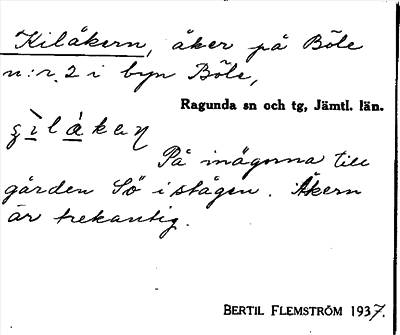 Kilåkern, åker på Böle
n:r 2 i byn Böle,
Ragunda sn och tg, Jämtl. län.
På inägorna till
gården Sö i stågen. Åkern
är trekantig.
BERTIL FLEMSTRÖM 1937.